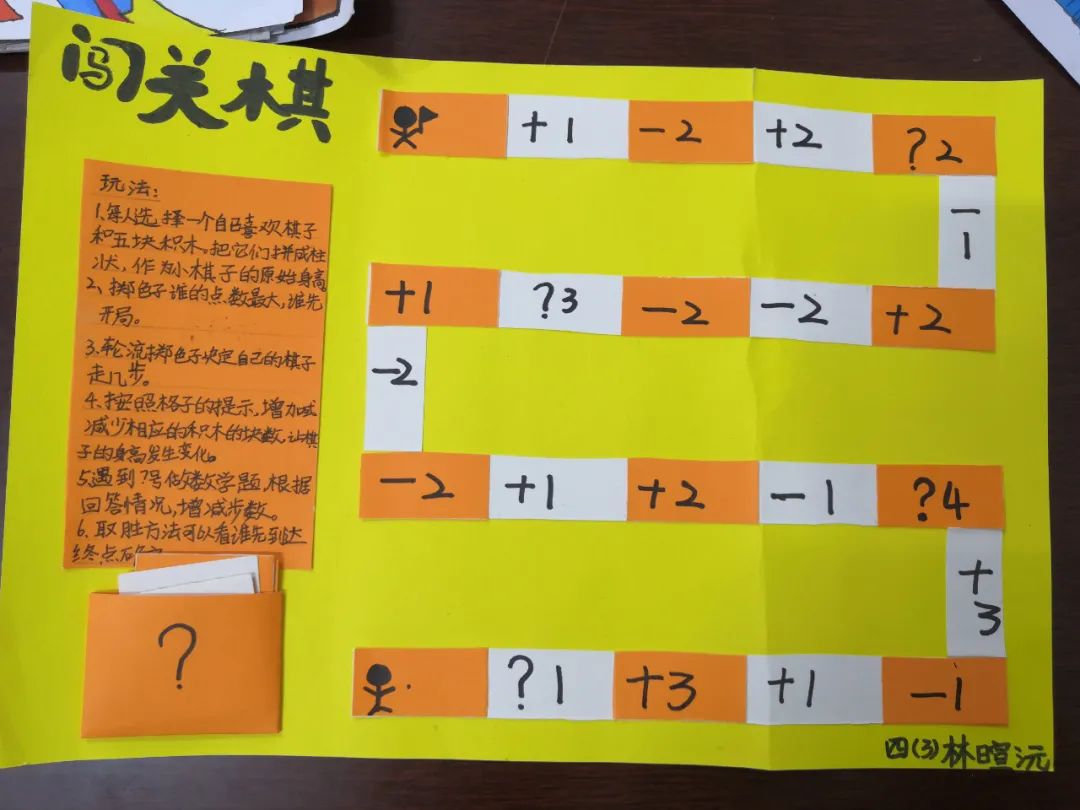 闯关棋
玩法：
1、每人选择一个自己喜欢棋子
和五块积木。把它们拼成柱
状，作为小棋子的原始身高。
2、掷色子谁的点数最大，谁先
开局。
3、轮流掷色子决定自己的棋子
走几步。
4、按照格子的提示，增加或
减少相应的积木的块数，让棋
子的身高发生变化。
5遇到?号做数学题，根据
回答情况，增减步数。
6、取胜方法可以看谁先到达
终点
?
+1 -2 +2 ?2
-1
+1 ?3 -2 -2 +2
-2
-2 +1 +2 -1 ?4
+3
?1 +3 +1 -1
四(3)林暄沅